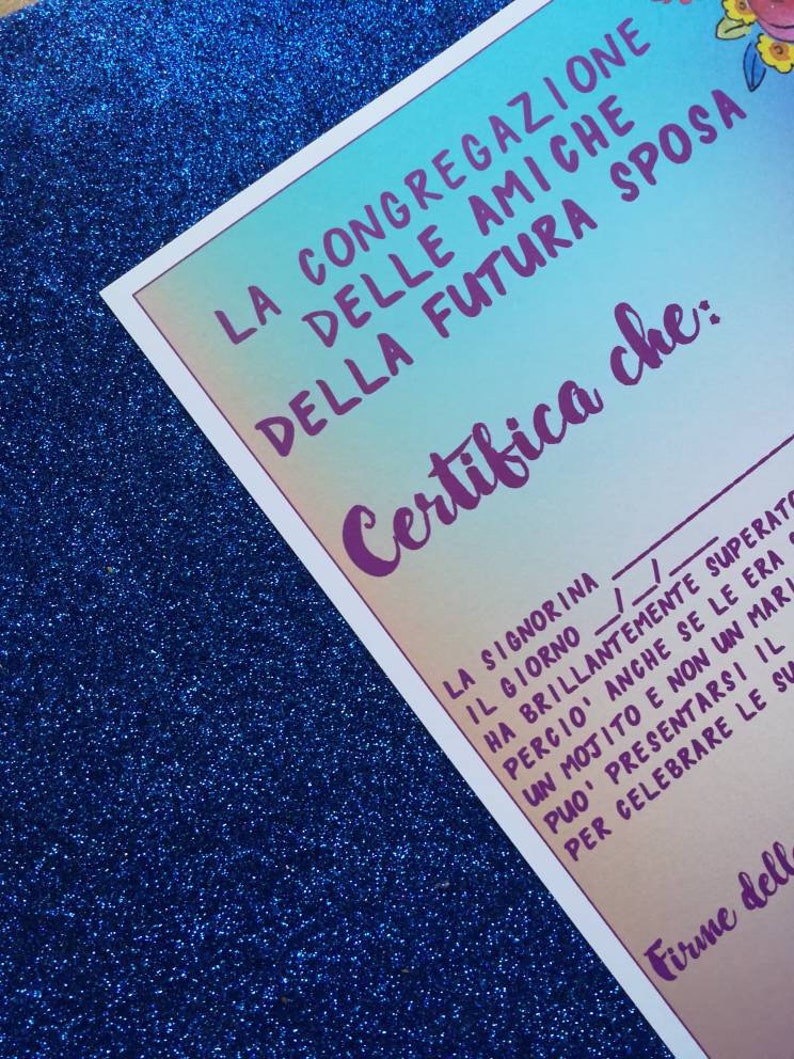 LA CONGREGAZIONE
DELLE AMICHE
DELLA FUTURA SPOSA
Certifica che:
LA SIGNORINA ____________
IL GIORNO __/__/____
HA BRILLANTEMENTE SUPERATO
PERCIO' ANCHE SE LE ERA
UN MOJITO E NON UN MARI
PUO' PRESENTARSI IL
PER CELEBRARE LE SU
Firme delle